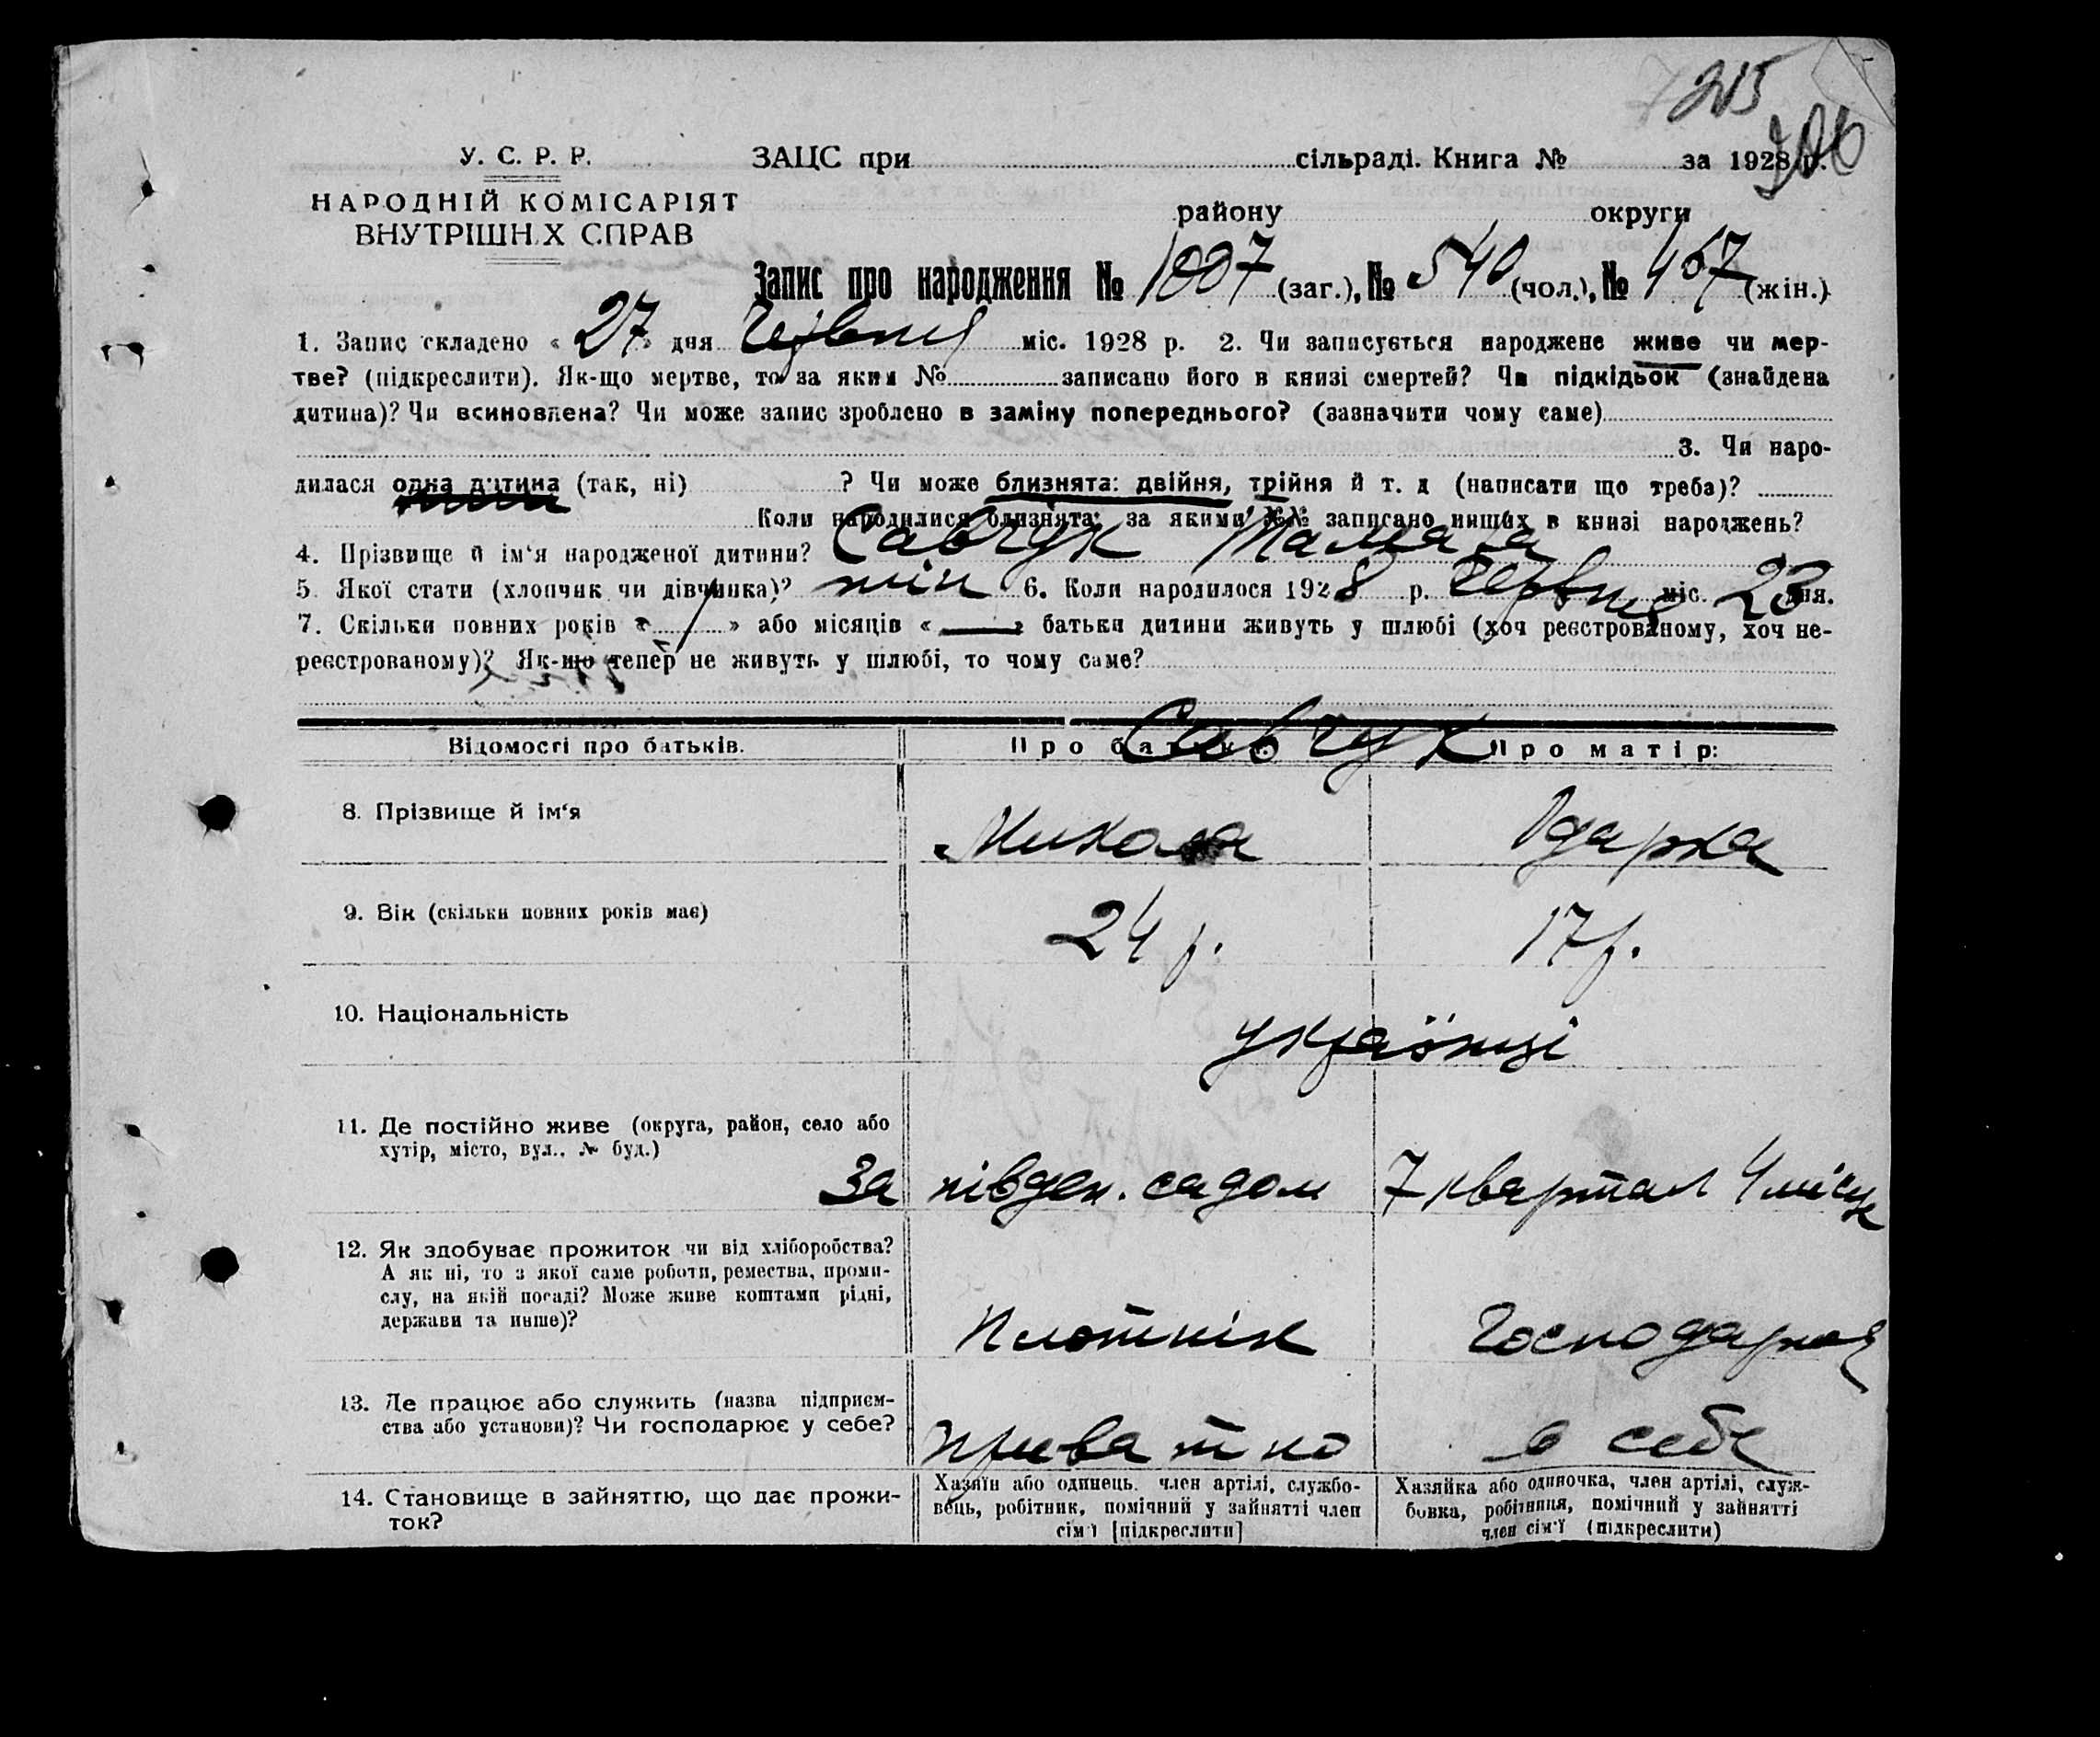 215
206
У. С. Р. Р.
НАРОДНІЙ КОМІСАРІЯТ
ВНУТРІШНІХ СПРАВ
ЗАЦС при сільраді. Книга № за 1928 р.
району округи
Запис про народження № 1007 (заг.), № 540 (чол.), № 467 (жін.)
1. Запис складено « 27 » дня Червня міс. 1928 р. 2. Чи записується народжене живе чи мер-
тве? (підкреслити). Як-що мертве, то за яким № записано його в книзі смертей? Чи підкідьок (знайдена
дитина)? Чи всиновлена? Чи може запис зроблено в заміну попереднього? (зазначити чому саме)
3. Чи наро-
дилася одна дитина (так, ні) ? Чи може близнята: двійня, трійня й т. д (написати що треба)?
Коли народилися близнята: за якими №№ записано инших в книзі народжень?
4. Прізвище й ім‘я народженої дитини? Савчук Тамара
5. Якої стати (хлопчик чи дівчинка)? жін 6. Коли народилося 1928 р. Червня міс. 23 дня.
7. Скільки повних років « 1 » або місяців « — » батьки дитини живуть у шлюбі (хоч реєстрованому, хоч не-
реєстрованому)? Як-що тепер не живуть у шлюбі, то чому саме?
Відомості про батьків. Про батька: Про матір:
Савчук
8. Прізвище й ім‘я Микола Одарка
9. Вік (скільки повних років має) 24 р. 17 р.
10. Національність українці
11. Де постійно живе (округа, район, село або
хутір, місто, вул., № буд.)
За півден. садом 7 квартал 4 місце
12. Як здобуває прожиток чи від хліборобства?
А як ні, то з якої саме роботи, ремества, проми-
слу, на якій посаді? Може живе коштами рідні,
держави та инше)?
Плотнік Господарка
13. Де працює або служить (назва підприєм-
ства або установи)? Чи господарює у себе?
приватно в себе
14. Становище в зайняттю, що дає прожи-
ток?
Хазяїн або одинець, член артілі, службо-
вець, робітник, помічний у зайнятті член
сім'ї [підкреслити]
Хазяйка або одиночка, член артілі, служ-
бовка, робітниця, помічний у зайнятті
член сім'ї (підкреслити)